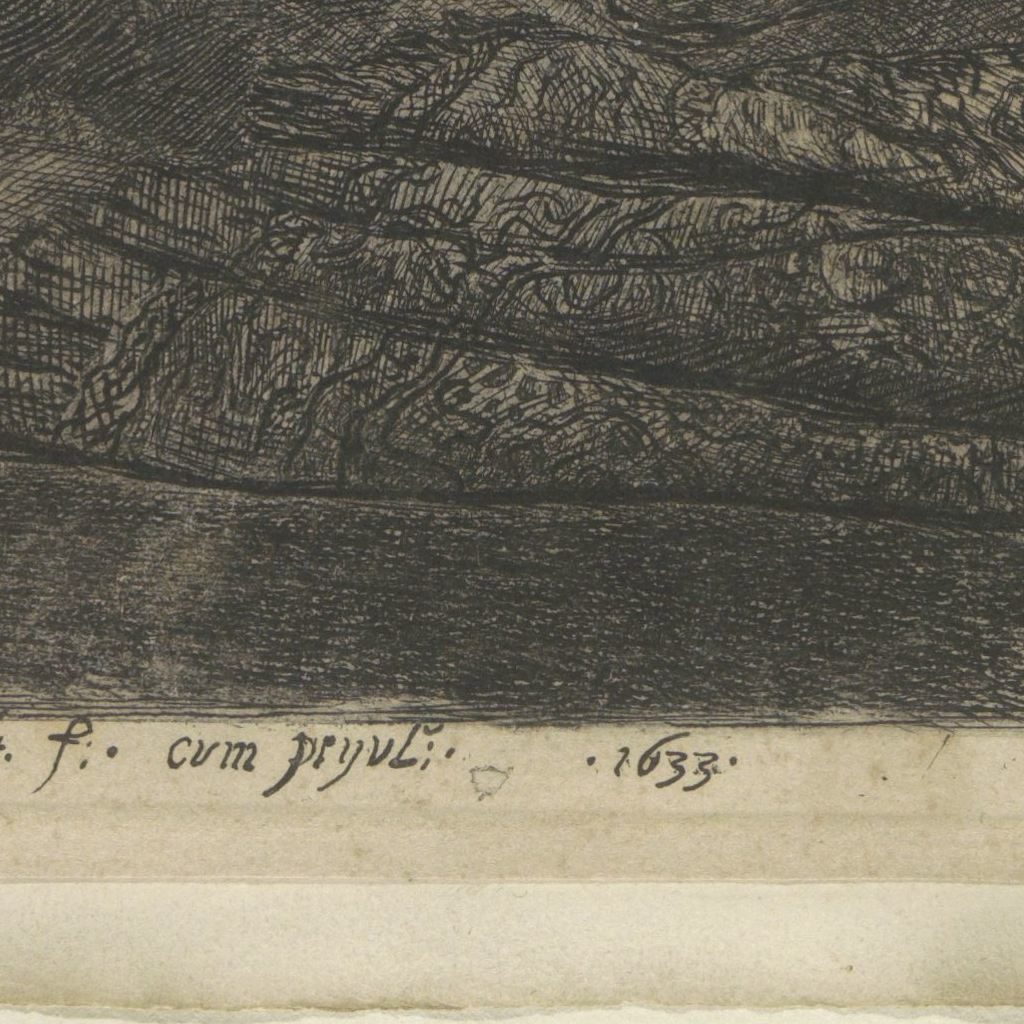 f: · cum pryvl: · · 1633 ·